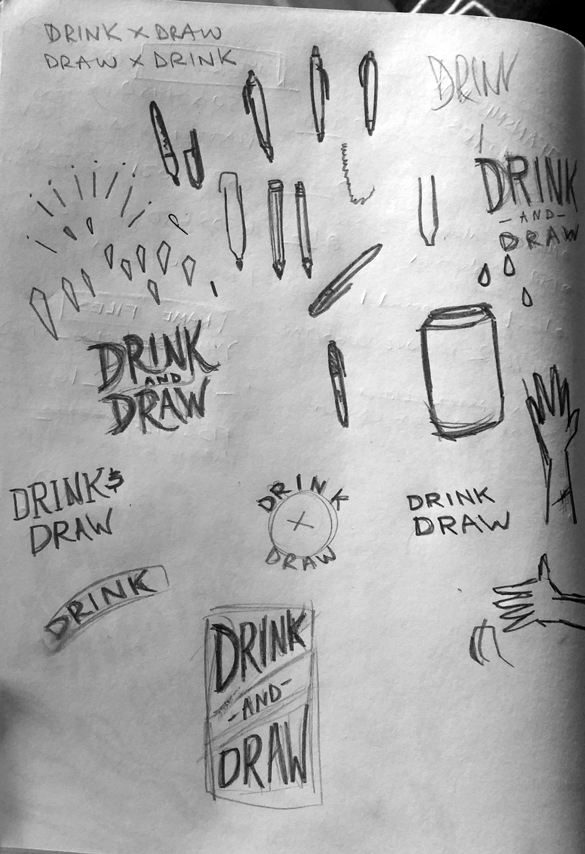 DRINK X DRAW
DRAW X DRINK
DRINK
DRINK
-AND-
DRAW
DRINK
AND
DRAW
DRINK &
DRAW
DRINK
X
DRAW
DRINK
DRAW
DRINK
DRINK
-AND-
DRAW